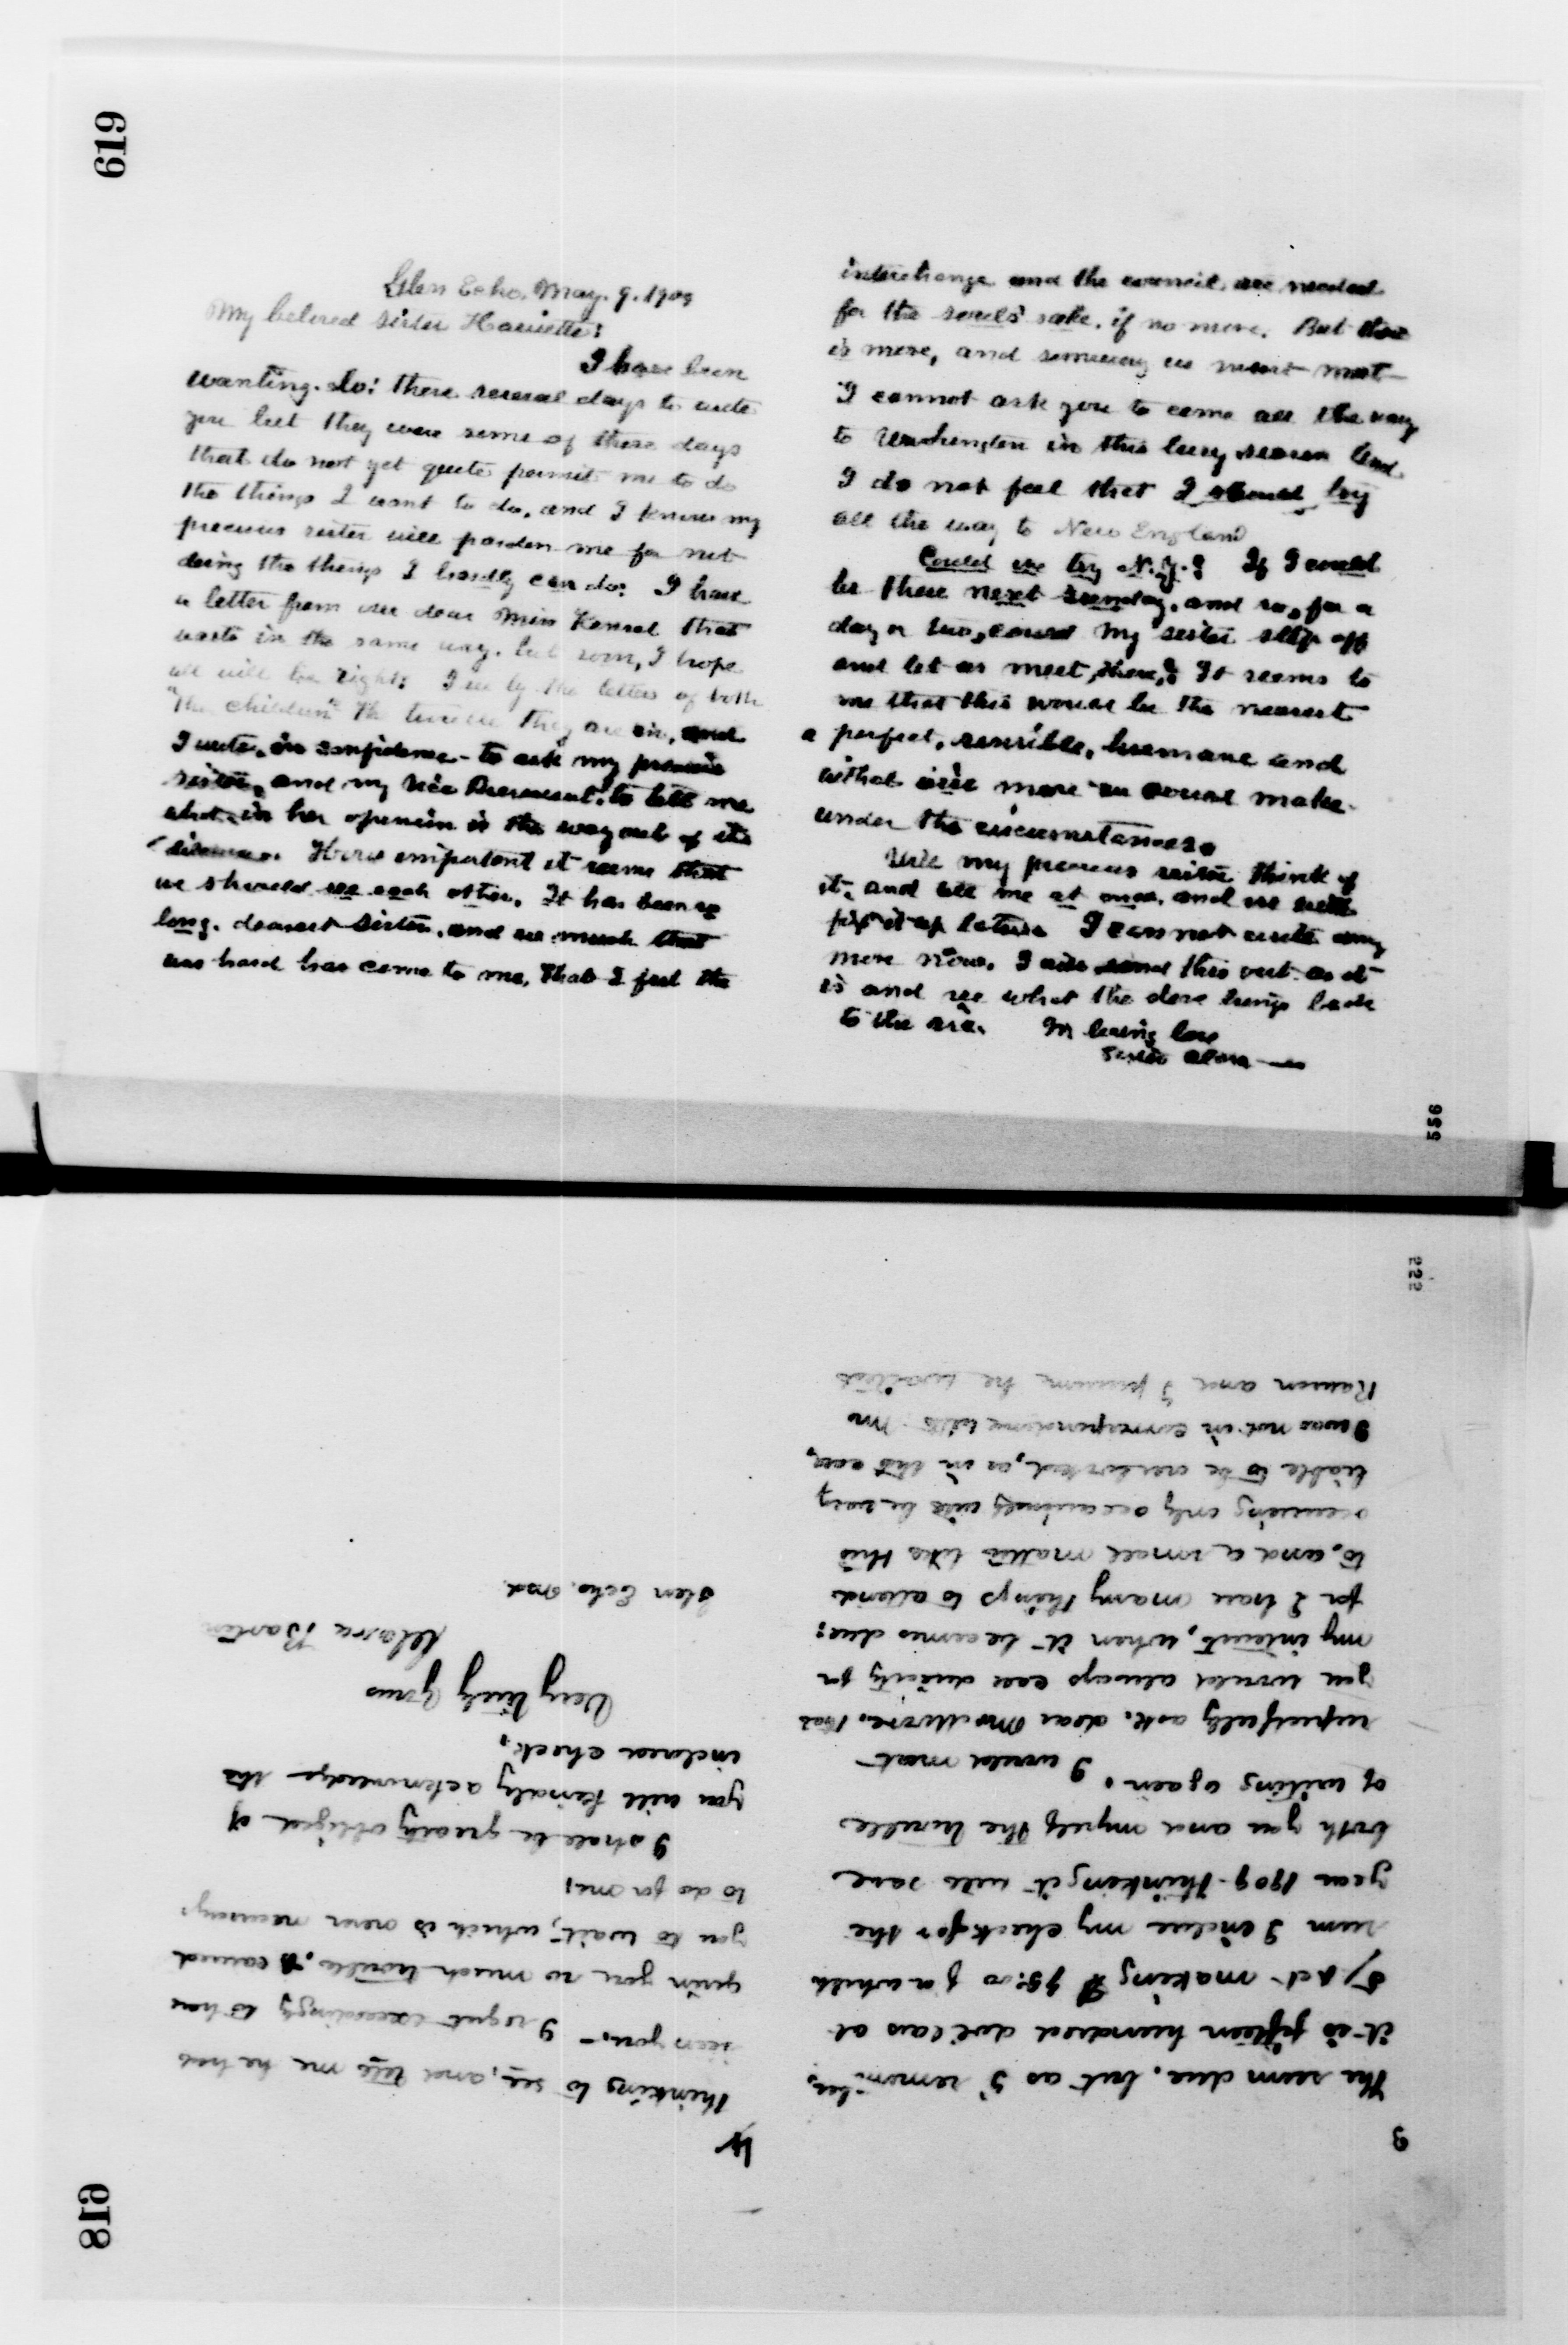 619
Glen Echo. May. 9. 1909
My beloved sister Harriette:
I have been
wanting. Lo! these several days to write
you but they were some of those days
that do not yet quite permit me to do
the things I want to do, and I know my
precious sister will pardon me for not
doing the things I hardly can do: I have
a letter from our dear Miss Kensel that
waits in the same way. but soon, I hope
all will be right: I see by the letters of both
"The children" the trouble they are in, and
I write, in confidence - to ask my precious
sister, and my Vice President, to tell me
what in her opinion is the way out of its
dilemma. How important it seems that
we should see each other. It has been so
long. dearest sister, and so much that
was hard has come to me, that I feel the
interchange and the council are needed
for the souls' sake, if no more. But there
is more, and someway we must meet
I cannot ask you to come all the way
to Washington in this busy season and
I do not feel that I should try
all the way to New England
Could we try N.Y.? If I could
be there next Sunday, and so, for a
day or two, could my sister slip off
and let us meet, there,? It seems to
me that this would be the nearest
a perfect, sensible, humane and
withal wise move we could make
under the circumstances.
Will my precious sister think of
it, and tell me at once, and we will
fix it up between I cannot write any
more now. I will send this out as it
is and see what the dove brings back
to the ark. In loving love
Sister Clara
556
222
3
The sum due, but as I remember,
it is fifteen hundred dollars at
5 pct - making $ 75.00 for which
sum I inclose my check for the
year 1909 - thinking it will save
both you and myself the trouble
of writing again. I would most
respectfully ask. dear Mr. that
you would always call directly for
my interest, when it becomes due:
for I have many things to attend
to, and a small matter like this
occurring only occasionally will be very
liable to be overlooked, as in this case,
I was not in correspondence with Mr
and I presume he waited
4
thinking to see, and tell me he had
seen you. - I regret exceedingly to have
given you so much trouble, & caused
you to wait, which is never necessary
to do for me,
I shall be greatly obliged if
you will kindly acknowledge the
inclosed check,
Very truly yours
Clara Barton
Glen Echo. Md.
618